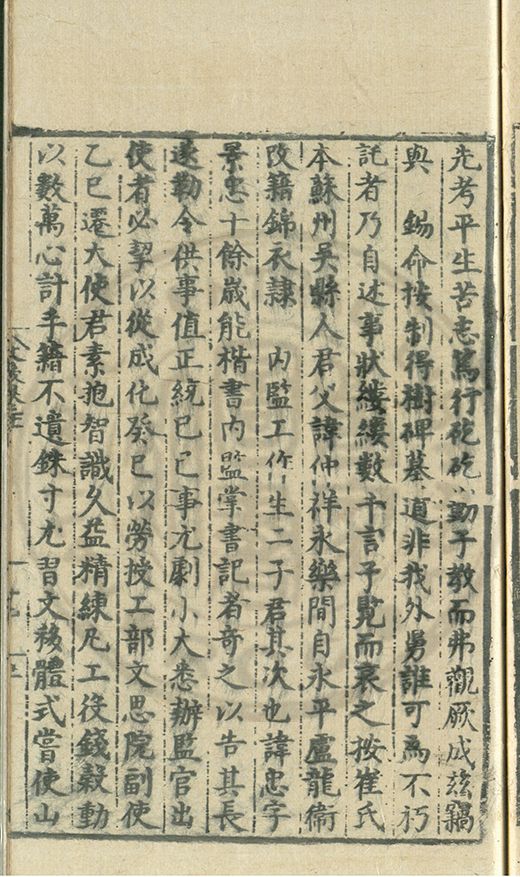 先考平生苦志篤行矻矻以勤子教而弗觀厥成玆竊
與　錫命按制得樹碑墓道非我外舅誰可爲不朽
託者乃自述事狀縷縷數千言予覽而哀之按崔氏
本蘇州吳縣人君父諱仲祥永樂間自永平盧龍衛
改籍錦衣隸　內監工作生二子君其次也諱忠字
景忠十餘歲能楷書內監掌書記者奇之以告其長
遂勒令供事值正統己巳事尤劇小大悉辦監官出
使者必挈以從成化癸巳以勞授工部文思院副使
乙巳遷大使君素抱智識久益精練凡工役錢榖動
以數萬心計手籍不遺銖寸尤習文移體式嘗使山